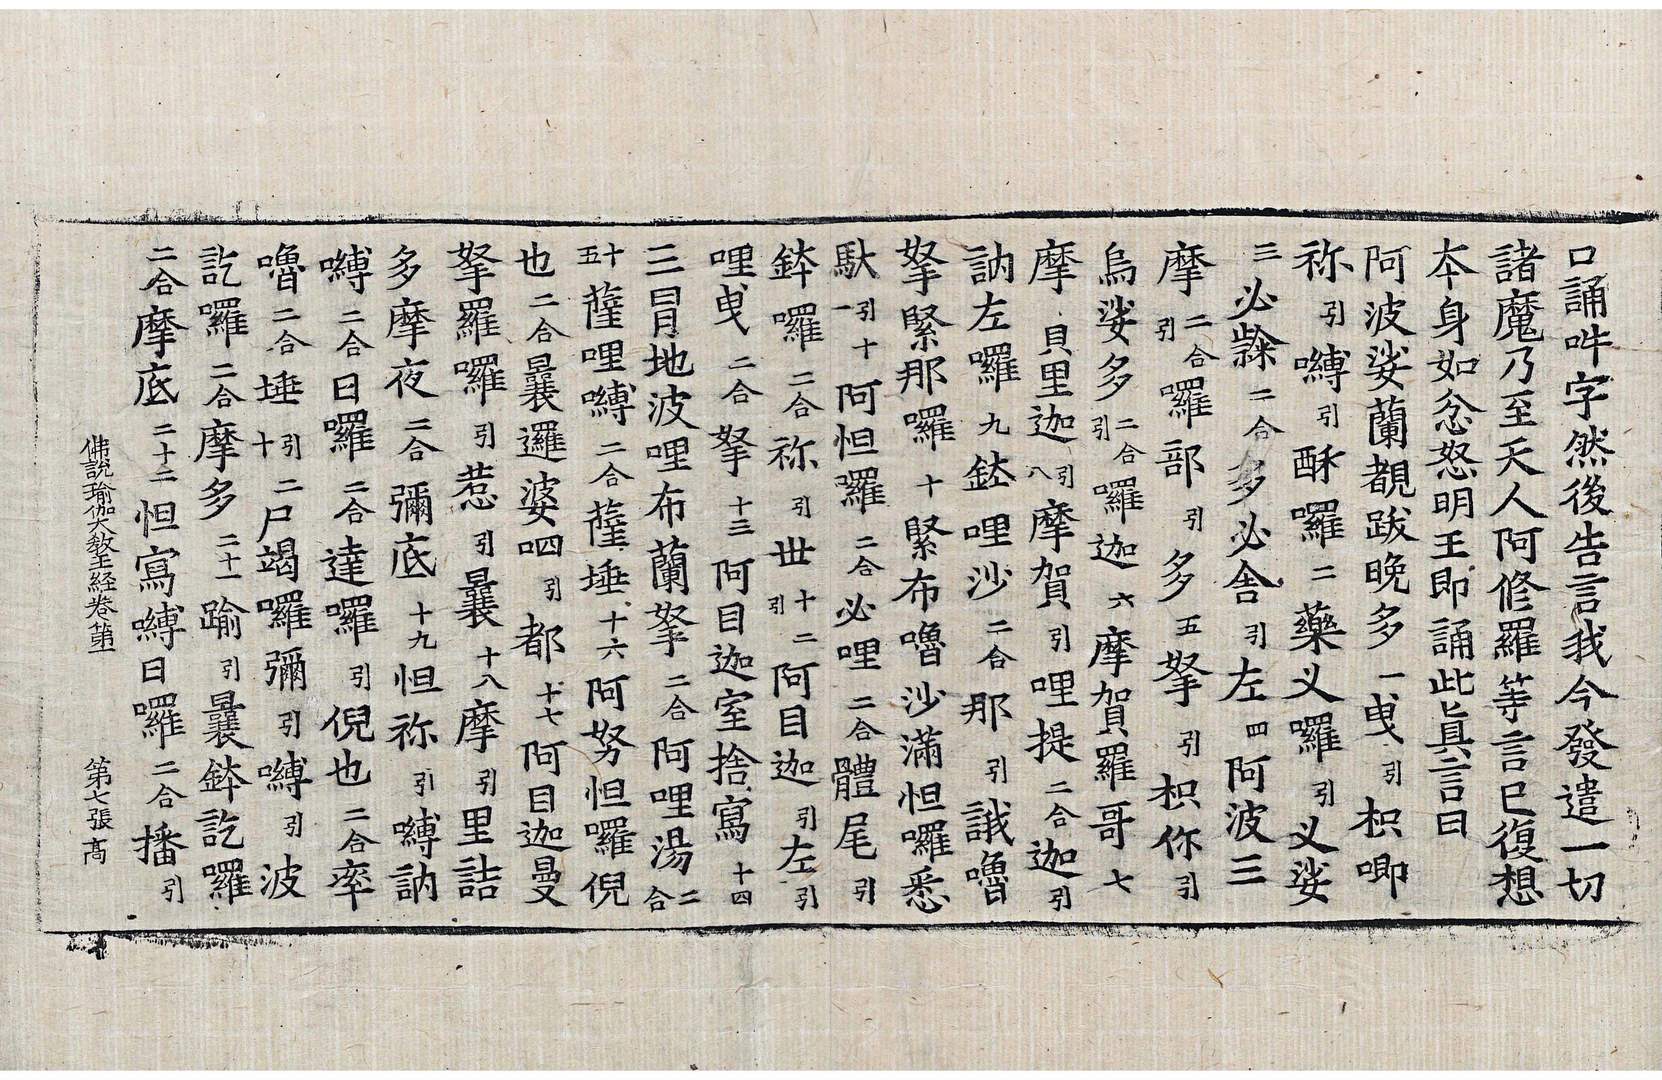 口誦吽字然後告言我今發遣一切
諸魔乃至天人阿修羅等言已復想
本身如忿怒明王即誦此眞言曰
阿波娑蘭覩跋晚多一曳引枳唧
祢引嚩引酥囉二藥乂囉引乂娑
三必二合多必舍引左四阿波三
摩二合引囉部引多五拏引枳你引
烏娑多二合引囉迦六摩賀羅哥七
摩貝里迦引八摩賀引哩提二合迦引
訥左囉九鉢哩沙二合那引誐嚕
拏緊那囉十緊布嚕沙滿怛囉悉
馱引十一阿怛囉二合必哩二合體尾引
鉢囉二合祢引丗十二引阿目迦引左引
哩曳二合拏十三阿目迦室捨寫十四
三冐地波哩布蘭拏二合阿哩湯二合
十五薩哩嚩二合薩埵十六阿努怛囉倪
也二合曩邏婆呬引都十七阿目迦曼
拏羅囉引惹引曩十八摩引里詰
多摩夜二合彌底十九怛祢引嚩訥
嚩二合日囉二合達囉引倪也二合率
嚕二合埵引二十尸竭囉彌引嚩引波
訖囉二合摩多二十一踰引曩鉢訖囉
二合摩底二十二怛寫嚩日囉二合播引
佛說瑜伽大教王經卷第一 第七張 高